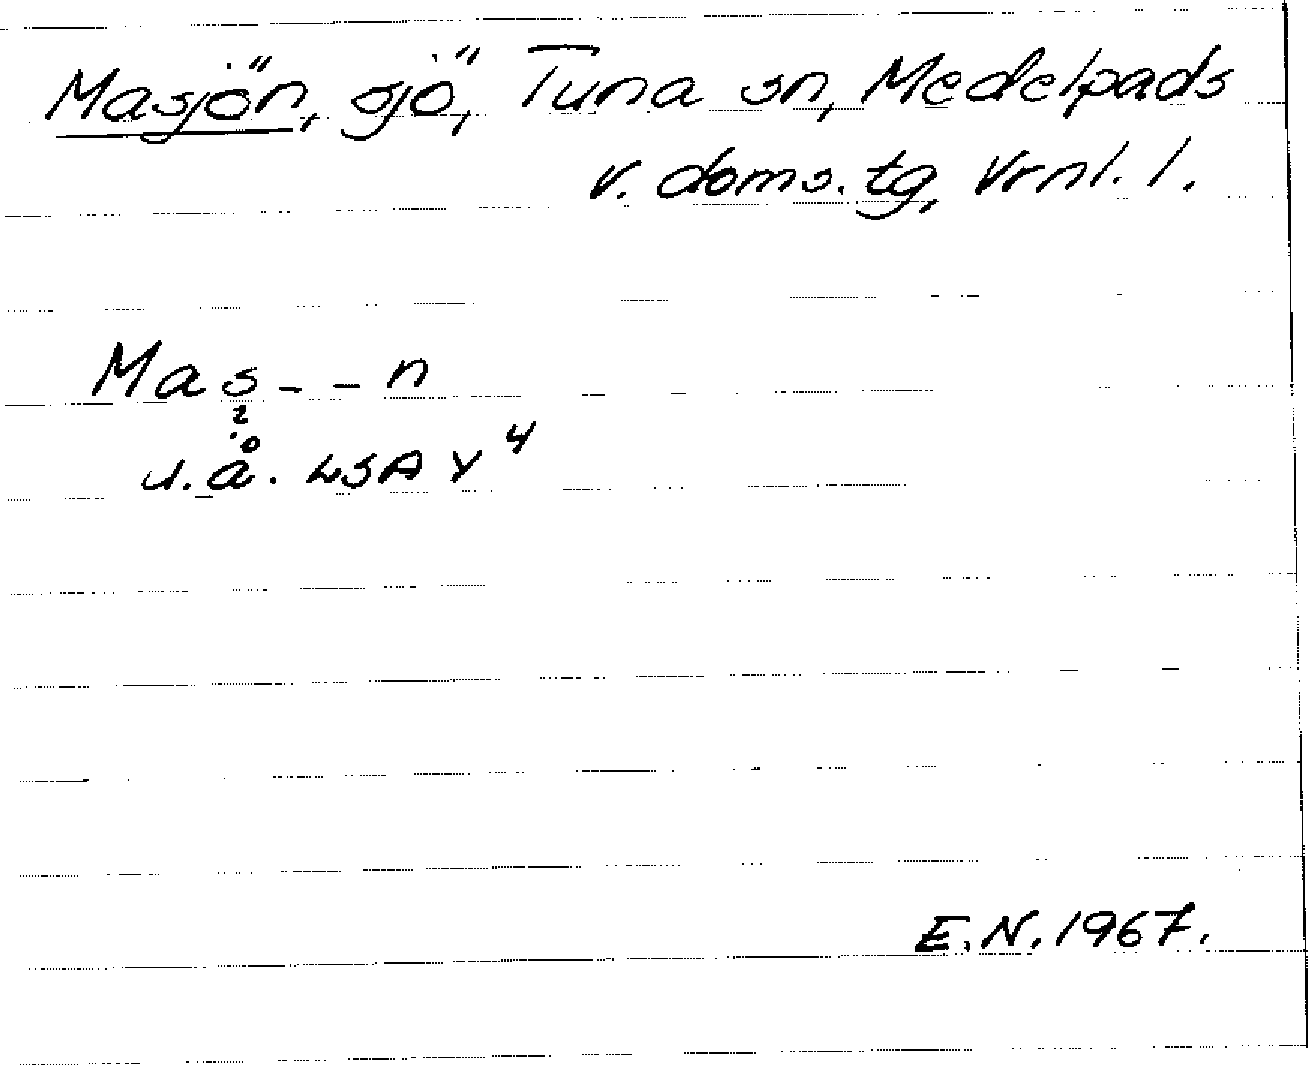 Masjön, sjö, Tuna sn, Medelpads
v. doms. tg, Vrnl. l.
Mas - - n
2
u.å. LSA Y 4
E.N. 1967.